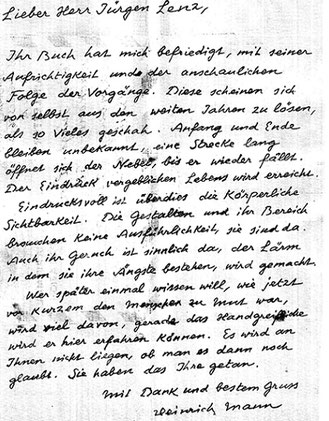 Lieber Herr Jürgen Lenz,
Ihr Buch hat mich befriedigt, mit seiner
Aufrichtigkeit und der anschaulichen
Folge der Vorgänge. Diese scheinen sich
von selbst aus den weiten Jahren zu lösen,
als so Vieles geschah. Anfang und Ende
bleiben unbekannt, eine Strecke lang
öffnet sich der Nebel, bis er wieder fällt.
Der Eindrück vergeblichen Lebens wird erreicht.
Eindrucksvoll ist überdies die Körperliche
Sichtbarkeit. Die Gestalten und ihr Bereich
brauchen keine Ausführlichkeit, sie sind da.
Auch ihr Geruch ist sinnlich da, der Lärm
in dem sie ihre Ängste bestehen, wird gemacht.
Wer später einmal wissen will, wie jetzt
vor Kurzem den Menschen zu Mut war,
wird viel davon, gerade das Handgreifliche
wird er hier erfahren können. Es wird an
Ihnen nicht liegen, ob man es dann noch
glaubt. Sie haben das Ihre getan.
Mit Dank und bestem Gruss
Heinrich Mann